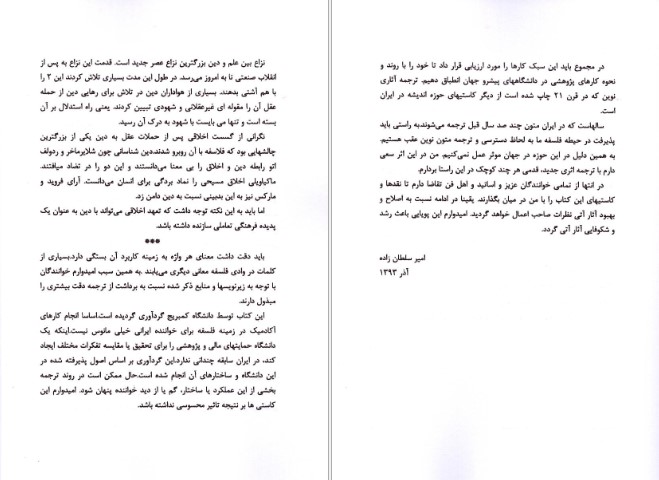 نزاع بین علم و دین بزرگترین نزاع عصر جدید است. قدمت این نزاع به پس از
انقلاب صنعتی تا به امروز می‌رسد. در طول این مدت بسیاری تلاش کردند این ۲ را
با هم آشتی بدهند. بسیاری از هواداران دین در تلاش برای رهایی دین از حمله
عقل آن را مقوله ای غیرعقلانی و شهودی تبیین کردند. یعنی راه استدلال بر آن
بسته است و تنها می بایست با شهود به درک آن رسید.
نگرانی از گسست اخلاقی پس از حملات عقل به دین یکی از بزرگترین
چالشهایی بود که فلاسفه با آن روبرو شدند.دین شناسانی چون شلایرماخر و ردولف
اتو رابطه دین و اخلاق را بی معنا می‌دانستند و این دو را در تضاد میافتند.
ماکیاولیی اخلاق مسیحی را نماد بردگی برای انسان می‌دانست. آرای فروید و
مارکس نیز به این بدبینی نسبت به دین دامن زد.
اما باید به این نکته توجه داشت که تعهد اخلاقی می‌تواند با دین به عنوان یک
پدیده فرهنگی تعاملی سازنده داشته باشد.
***
باید دقت داشت معنای هر واژه به زمینه کاربرد آن بستگی دارد.بسیاری از
کلمات در وادی فلسفه معانی دیگری می‌یابند .به همین سبب امیدوارم خوانندگان
با توجه به زیرنویسها و منابع ذکر شده نسبت به برداشت از ترجمه دقت بیشتری را
مبذول دارند.
این کتاب توسط دانشگاه کمبریج گردآوری گردیده است.اساسا انجام کارهای
آکادمیک در زمینه فلسفه برای خواننده ایرانی خیلی مانوس نیست.اینکه یک
دانشگاه حمایتهای مالی و پژوهشی را برای تحقیق یا مقایسه تفکرات مختلف ایجاد
کند، در ایران سابقه چندانی ندارد.این گردآوری بر اساس اصول پذیرفته شده در
این دانشگاه و ساختارهای آن انجام شده است.حال ممکن است در روند ترجمه
بخشی از این عملکرد یا ساختار، گم یا از دید خواننده پنهان شود. امیدوارم این
کاستی ها بر نتیجه تاثیر محسوسی نداشته باشد.
در مجموع باید این سبک کارها را مورد ارزیابی قرار داد تا خود را با روند و
نحوه کارهای پژوهشی در دانشگاههای پیشرو جهان انطباق دهیم. ترجمه آثاری
نوین که در قرن ۲۱ چاپ شده است از دیگر کاستیهای حوزه اندیشه در ایران
است.
سالهاست که در ایران متون چند صد سال قبل ترجمه می‌شوند.به راستی باید
پذیرفت در حیطه فلسفه ما به لحاظ دسترسی و ترجمه متون نوین عقب هستیم.
به همین دلیل در این حوزه در جهان موثر عمل نمی‌کنیم. من در این اثر سعی
دارم با ترجمه اثری جدید، قدمی هر چند کوچک در این راستا بردارم.
در انتها از تمامی خوانندگان عزیز و اساتید و اهل فن تقاضا دارم تا نقدها و
کاستیهای این کتاب را با من در میان بگذارند. یقینا در ادامه نسبت به اصلاح و
بهبود آثار آتی نظرات صاحب اعمال خواهد گردید. امیدوارم این پویایی باعث رشد
و شکوفایی آثار آتی گردد.
امیر سلطان زاده
آذر ۱۳۹۳